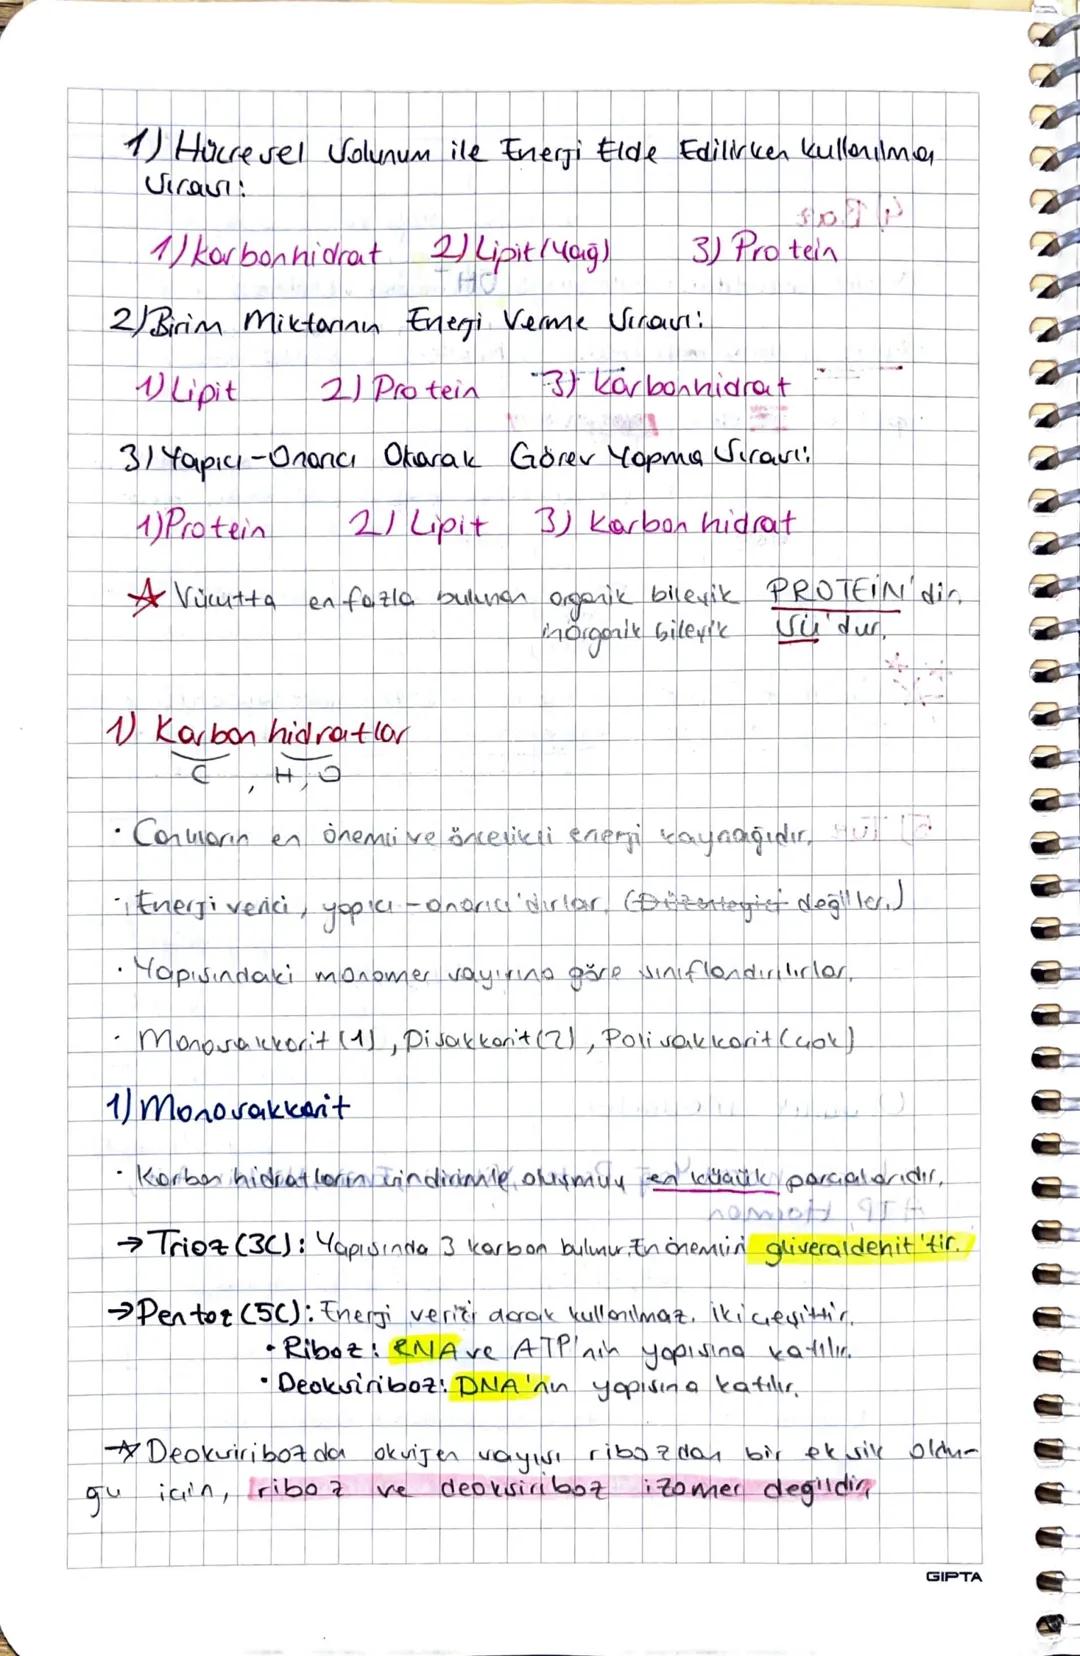 1) Hücresel Solunum ile Enerji Elde Edilirken Kullanılma
Sırası:
1) Karbonhidrat 2) Lipit (Yağ) 3) Protein
2) Birim Miktarının Enerji Verme Sırası:
1) Lipit 2) Protein 3) Karbonhidrat
3) Yapıcı-Onarıcı Olarak Görev Yapma Sırası:
1) Protein 2) Lipit 3) Karbonhidrat
☆ Vücutta en fazla bulunan organik bileşik PROTEİN'dir,
inorganik bileşik SU'dur.
1) Karbonhidratlar
C, H, O
• Canlıların en önemli ve öncelikli enerji kaynağıdır.
• Enerji verici, yapıcı-onarıcı'dırlar. (Düzenleyici değiller.)
• Yapısındaki monomer sayısına göre sınıflandırılırlar.
• Monosakkarit (1), Disakkarit (2), Polisakkarit (çok)
1) Monosakkarit
• Karbonhidratların sindirimiyle oluşmuş en küçük parçalarıdır.
→ Trioz (3C): Yapısında 3 karbon bulunur. En önemlisi gliseraldehit'tir.
→ Pentoz (5C): Enerji verici olarak kullanılmaz. İki çeşittir.
• Riboz: RNA ve ATP'nin yapısına katılır.
• Deoksiriboz: DNA'nın yapısına katılır.
☆ Deoksiribozda oksijen sayısı ribozdan bir eksik oldu-
ğu için, riboz ve deoksiriboz izomer değildir.
GIPTA